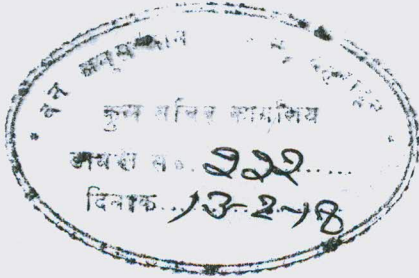 वन अनुसंधान
कुल सचिव कार्यालय
आवक सं.. 222.....
दिनांक...13-2-18